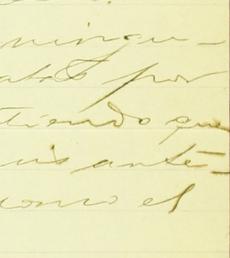 ningu-
por
tiendo que
uis ante-
como el